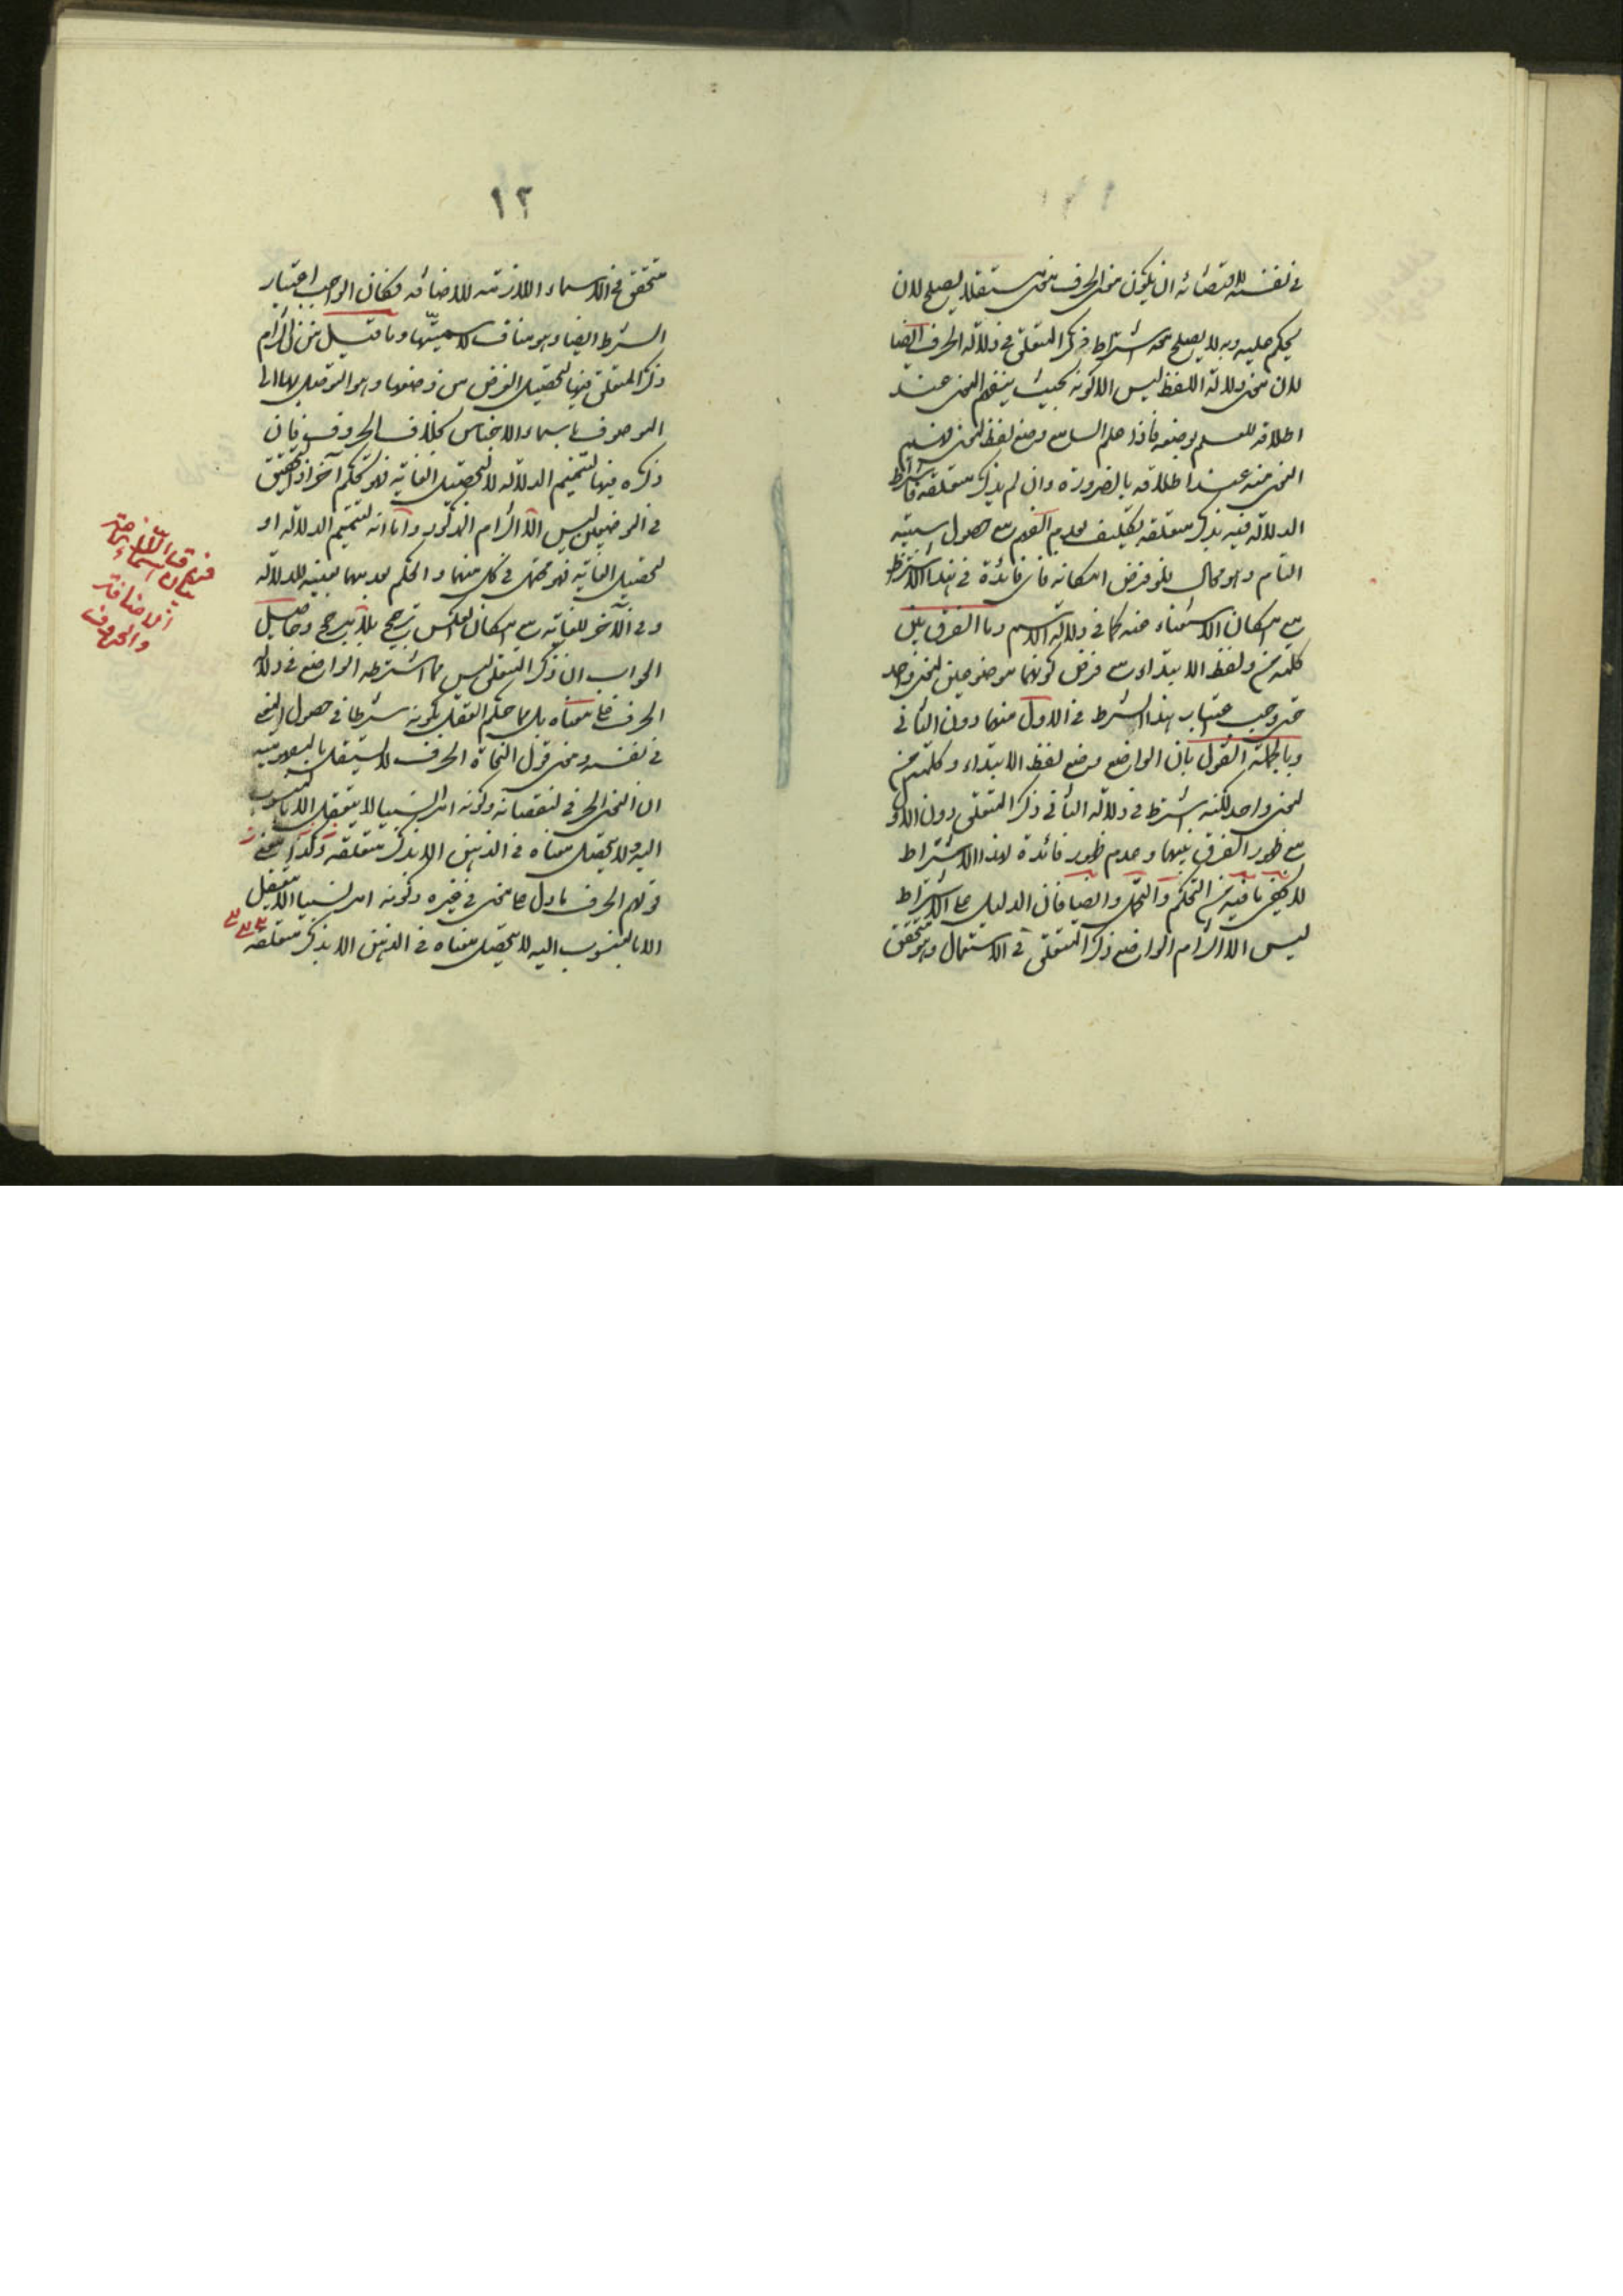 في نفسه لاقتضائه ان يكون معنى الحرف معنى مستقلا يصلح لان
يحكم عليه وبه لا يصلح نحو اشتراط ذكر المتعلق في دلالة الحرف ايضا
لان معنى دلالة اللفظ ليس الا كونه بحيث يفهم المعنى عند
اطلاقه للعلم بوضعه فاذا علم السامع وضع لفظ لمعنى
المعنى منه عند اطلاقه بالضرورة وان لم يذكر متعلقه فاشتراط
الدلالة فيه بذكر متعلقه تكليف بعدم الفهم مع حصول سببه
التام وهو محال فلو فرض امكانه فاى فائدة في هذا الاشتراط
مع امكان الاستغناء عنه كما في دلالة الاسم وما الفرق بين
كلمة من ولفظ الابتداء مع فرض كونهما موضوعين لمعنى واحد
حتى وجب اعتبار هذا الشرط في الاول منهما دون الثاني
وبالجملة القول بان الواضع وضع لفظ الابتداء وكلمة من
لمعنى واحد لكنه اشترط في دلالة الثاني ذكر المتعلق دون الاول
مع ظهور الفرق بينهما وعدم ظهور فائدة لهذا الاشتراط
لا يخفى ما فيه من التحكم والتمحل وايضا فان الدليل على الاشتراط
ليس الا التزام الواضع ذكر المتعلق في الاستعمال وهو متحقق
١٢
متحقق في الاسماء اللازمة للاضافة فكان الواجب اعتبار
الشرط ايضا وهو مناف لاسميتها وما قيل من ان التزام
ذكر المتعلق فيها لتحصيل الغرض من وضعها وهو التوصل بها الى
الموصوف باسماء الاجناس بخلاف الحروف فان
ذكره فيها لتتميم الدلالة لا لتحصيل الغاية فهو تحكم آخر اذ التحقق
في الموضعين ليس الا التزام المذكور واما انه لتتميم الدلالة او
لتحصيل الغاية فهو محتمل في كل منهما والحكم لاحدهما بعينه للدلالة
وفي الآخر للغاية مع امكان العكس ترجيح بلا مرجح وحاصل
الجواب ان ذكر المتعلق ليس مما اشترطه الواضع في دلالة
الحرف على معناه بل مما حكم العقل بكونه شرطا في حصول المعنى
في نفسه ومعنى قول النحاة الحرف لا يستقل بالمفهومية
ان المعنى الحرفي لنقصانه وكونه امرا نسبيا لا يتعقل الا بالمنسوب
اليه ولا يحصل معناه في الذهن الا بذكر متعلقه وكذا معنى
قولهم الحرف ما دل على معنى في غيره وكونه امرا نسبيا لا يتعقل
الا بالمنسوب اليه لا يحصل معناه في الذهن الا بذكر متعلقه
بيان
الاضافة
والحروف